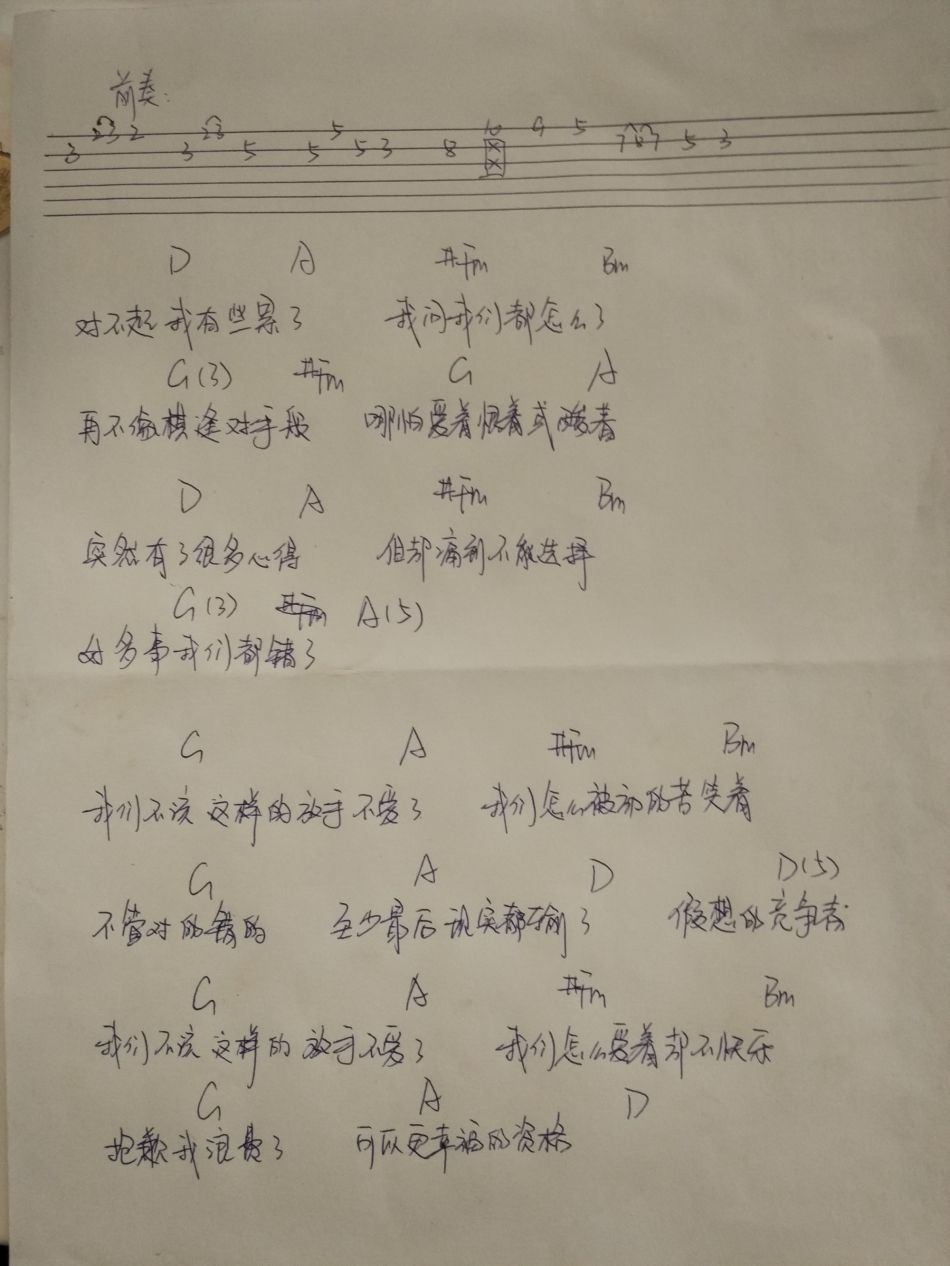 前奏:
3 2 3 2 3 2 3 5 5 5 5 3 8 10 9 5 7 8 7 5 3
D A #Fm Bm
对不起我有些累了 我问我们都怎么了
G(3) #Fm G A
再不像棋逢对手般 哪怕爱着恨着或酸着
D A #Fm Bm
突然有了很多心得 但却痛到不能选择
G(3) #Fm A(5)
好多事我们都错了
G A #Fm Bm
我们不该这样的放手不爱了 我们怎么被动的苦笑着
G A D D(5)
不管对的错的 至少最后现实都输了 假想的竞争者
G A #Fm Bm
我们不该这样的放手不爱了 我们怎么爱着却不快乐
G A D
抱歉我浪费了 可以更幸福的资格